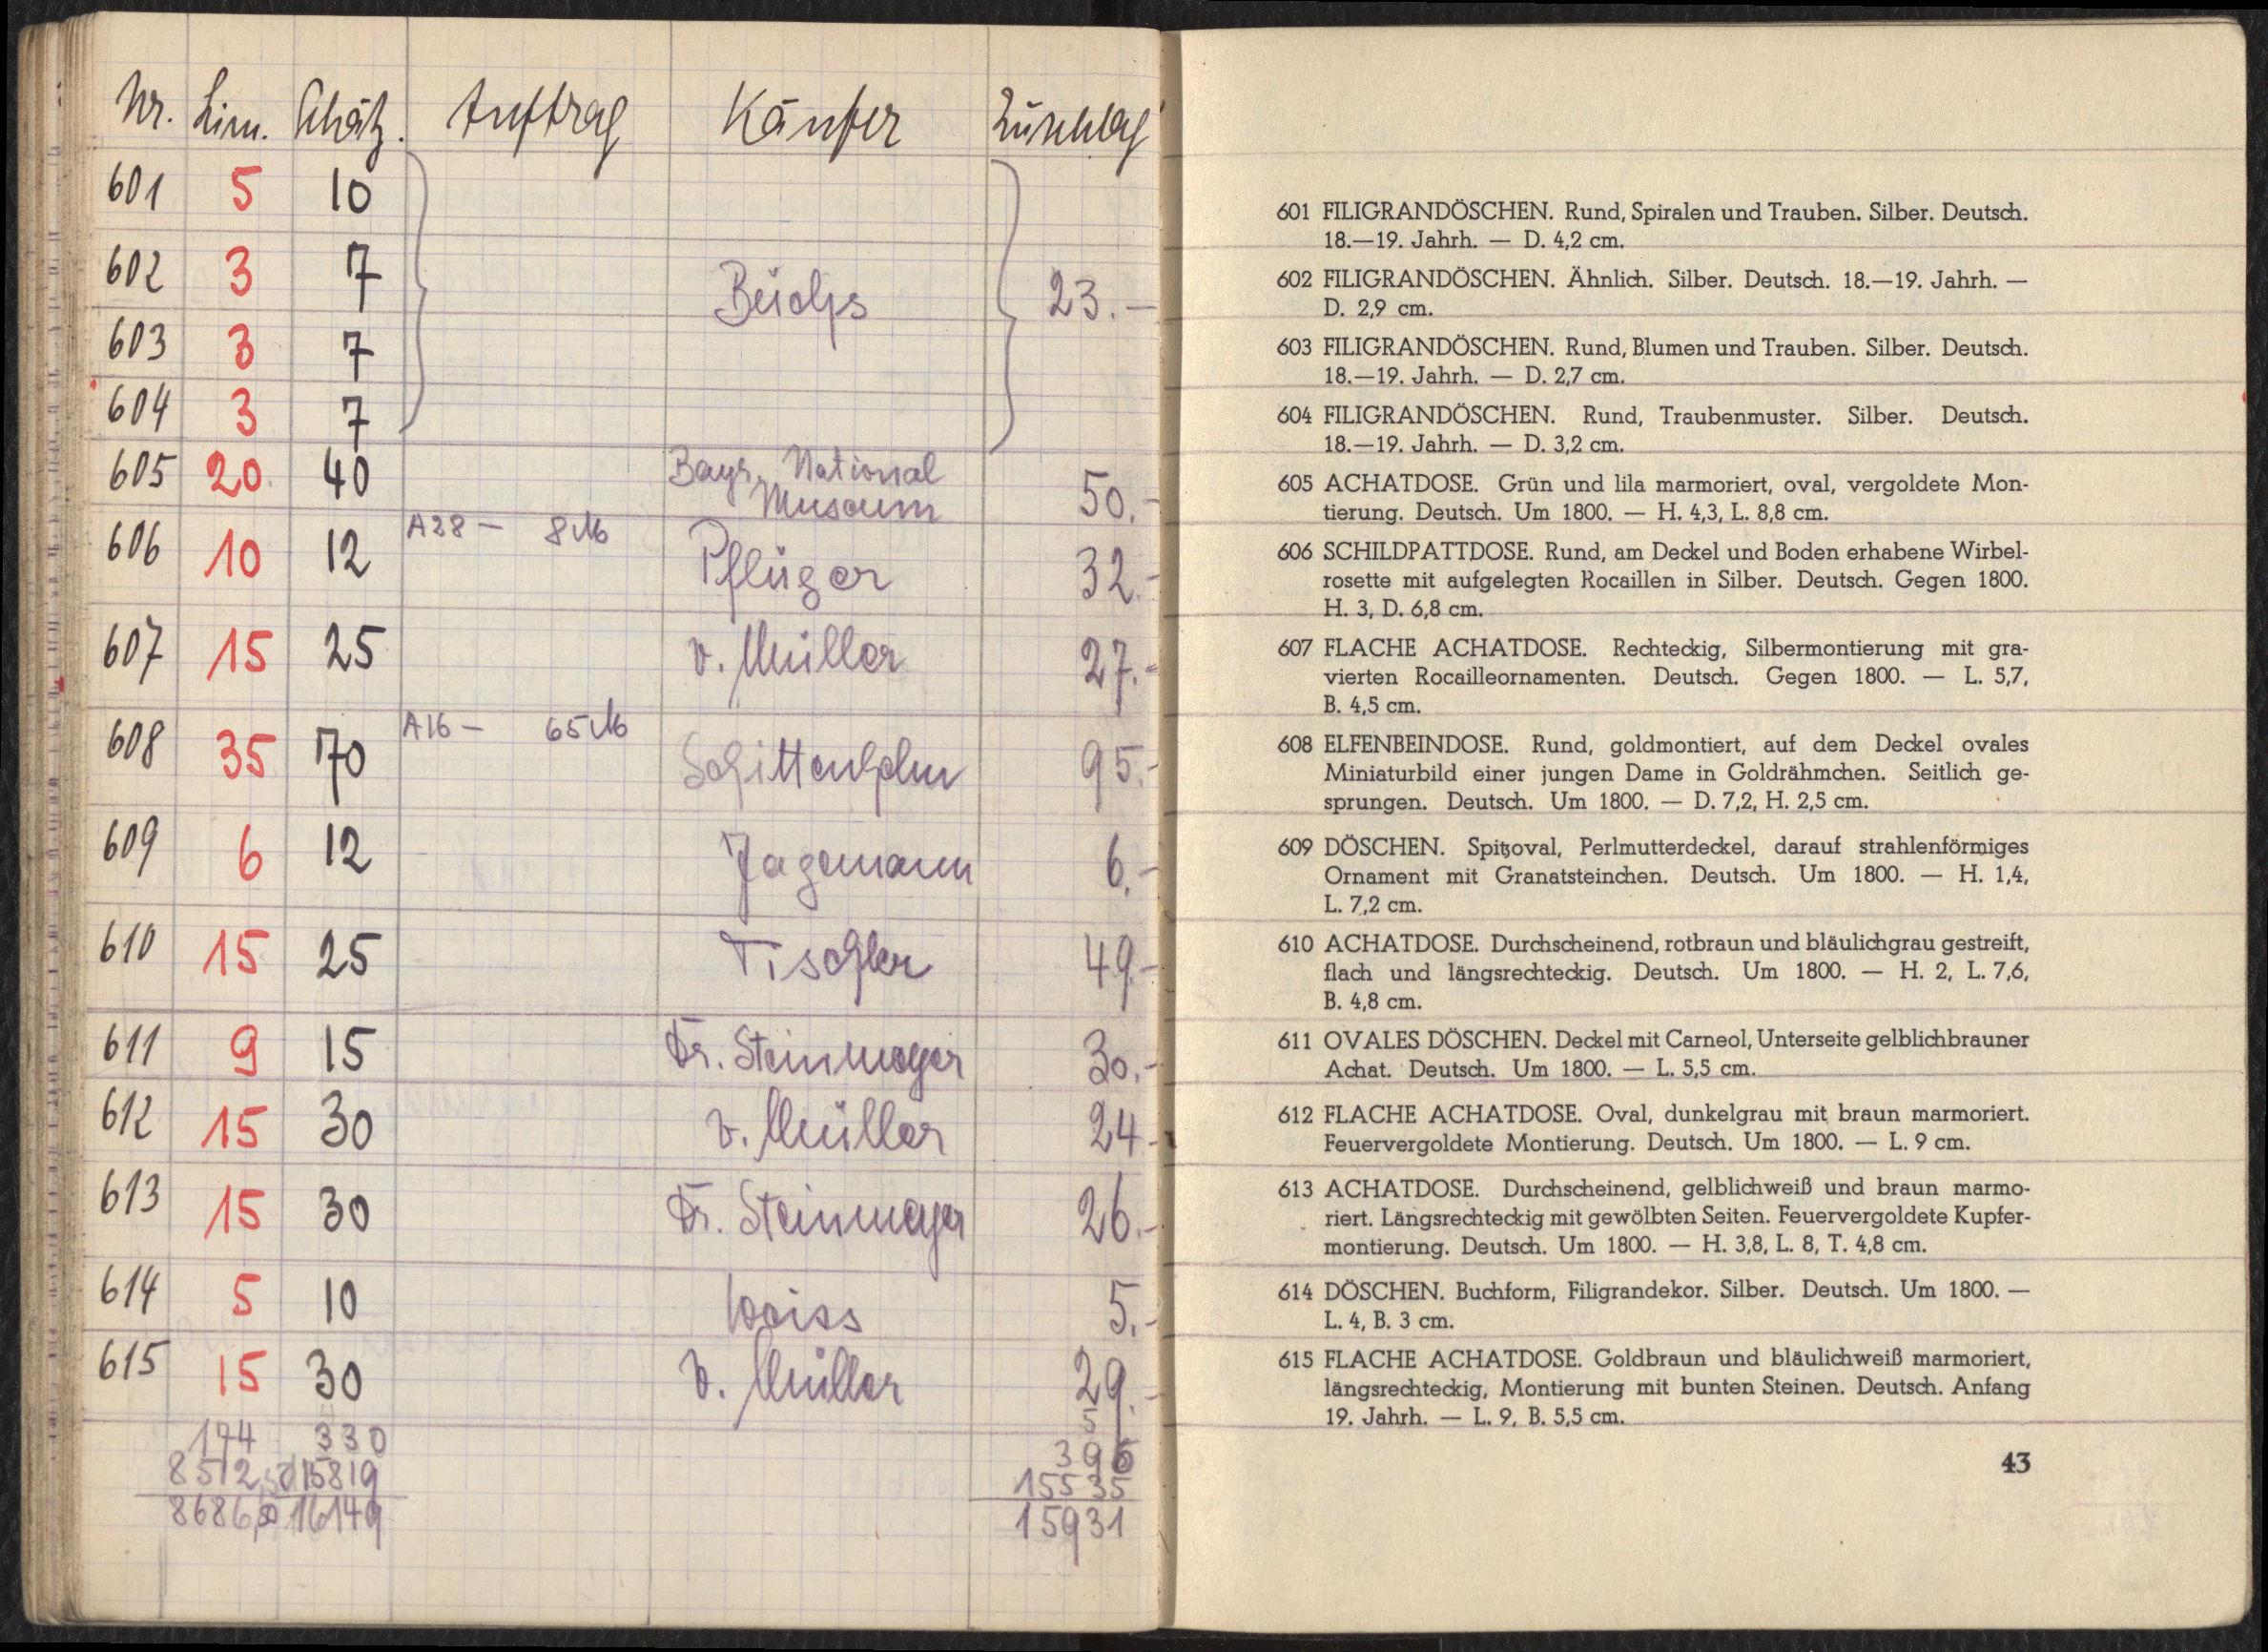 Nr. Lim. Schätz. Auftrag Käufer Zuschlag
601 5 10
602 3 7 23.—
603 3 7
604 3 7
605 20 40 Bayr. National
Museum 50.-
606 10 12 A28 — 8 M Pflüger 32.-
607 15 25 v. Müller 27.-
608 35 70 A16 — 65 M Schittenhelm 95.-
609 6 12 Jagemann 6.-
610 15 25 Tischler 49.-
611 9 15 Dr. Steinmeyer 30.-
612 15 30 v. Müller 24.-
613 15 30 Dr. Steinmeyer 26.-
614 5 10 Weiss 5.-
615 15 30 v. Müller 29.-
5
174 330 396
8512,50 15819 15535
8686,50 16149 15931
601 FILIGRANDÖSCHEN. Rund, Spiralen und Trauben. Silber. Deutsch.
18.—19. Jahrh. — D. 4,2 cm.
602 FILIGRANDÖSCHEN. Ähnlich. Silber. Deutsch. 18.—19. Jahrh. —
D. 2,9 cm.
603 FILIGRANDÖSCHEN. Rund, Blumen und Trauben. Silber. Deutsch.
18.—19. Jahrh. — D. 2,7 cm.
604 FILIGRANDÖSCHEN. Rund, Traubenmuster. Silber. Deutsch.
18.—19. Jahrh. — D. 3,2 cm.
605 ACHATDOSE. Grün und lila marmoriert, oval, vergoldete Mon-
tierung. Deutsch. Um 1800. — H. 4,3, L. 8,8 cm.
606 SCHILDPATTDOSE. Rund, am Deckel und Boden erhabene Wirbel-
rosette mit aufgelegten Rocaillen in Silber. Deutsch. Gegen 1800.
H. 3, D. 6,8 cm.
607 FLACHE ACHATDOSE. Rechteckig, Silbermontierung mit gra-
vierten Rocailleornamenten. Deutsch. Gegen 1800. — L. 5,7,
B. 4,5 cm.
608 ELFENBEINDOSE. Rund, goldmontiert, auf dem Deckel ovales
Miniaturbild einer jungen Dame in Goldrähmchen. Seitlich ge-
sprungen. Deutsch. Um 1800. — D. 7,2, H. 2,5 cm.
609 DÖSCHEN. Spitzoval, Perlmutterdeckel, darauf strahlenförmiges
Ornament mit Granatsteinchen. Deutsch. Um 1800. — H. 1,4,
L. 7,2 cm.
610 ACHATDOSE. Durchscheinend, rotbraun und bläulichgrau gestreift,
flach und längsrechteckig. Deutsch. Um 1800. — H. 2, L. 7,6,
B. 4,8 cm.
611 OVALES DÖSCHEN. Deckel mit Carneol, Unterseite gelblichbrauner
Achat. Deutsch. Um 1800. — L. 5,5 cm.
612 FLACHE ACHATDOSE. Oval, dunkelgrau mit braun marmoriert.
Feuervergoldete Montierung. Deutsch. Um 1800. — L. 9 cm.
613 ACHATDOSE. Durchscheinend, gelblichweiß und braun marmo-
riert. Längsrechteckig mit gewölbten Seiten. Feuervergoldete Kupfer-
montierung. Deutsch. Um 1800. — H. 3,8, L. 8, T. 4,8 cm.
614 DÖSCHEN. Buchform, Filigrandekor. Silber. Deutsch. Um 1800. —
L. 4, B. 3 cm.
615 FLACHE ACHATDOSE. Goldbraun und bläulichweiß marmoriert,
längsrechteckig, Montierung mit bunten Steinen. Deutsch. Anfang
19. Jahrh. — L. 9, B. 5,5 cm.
43